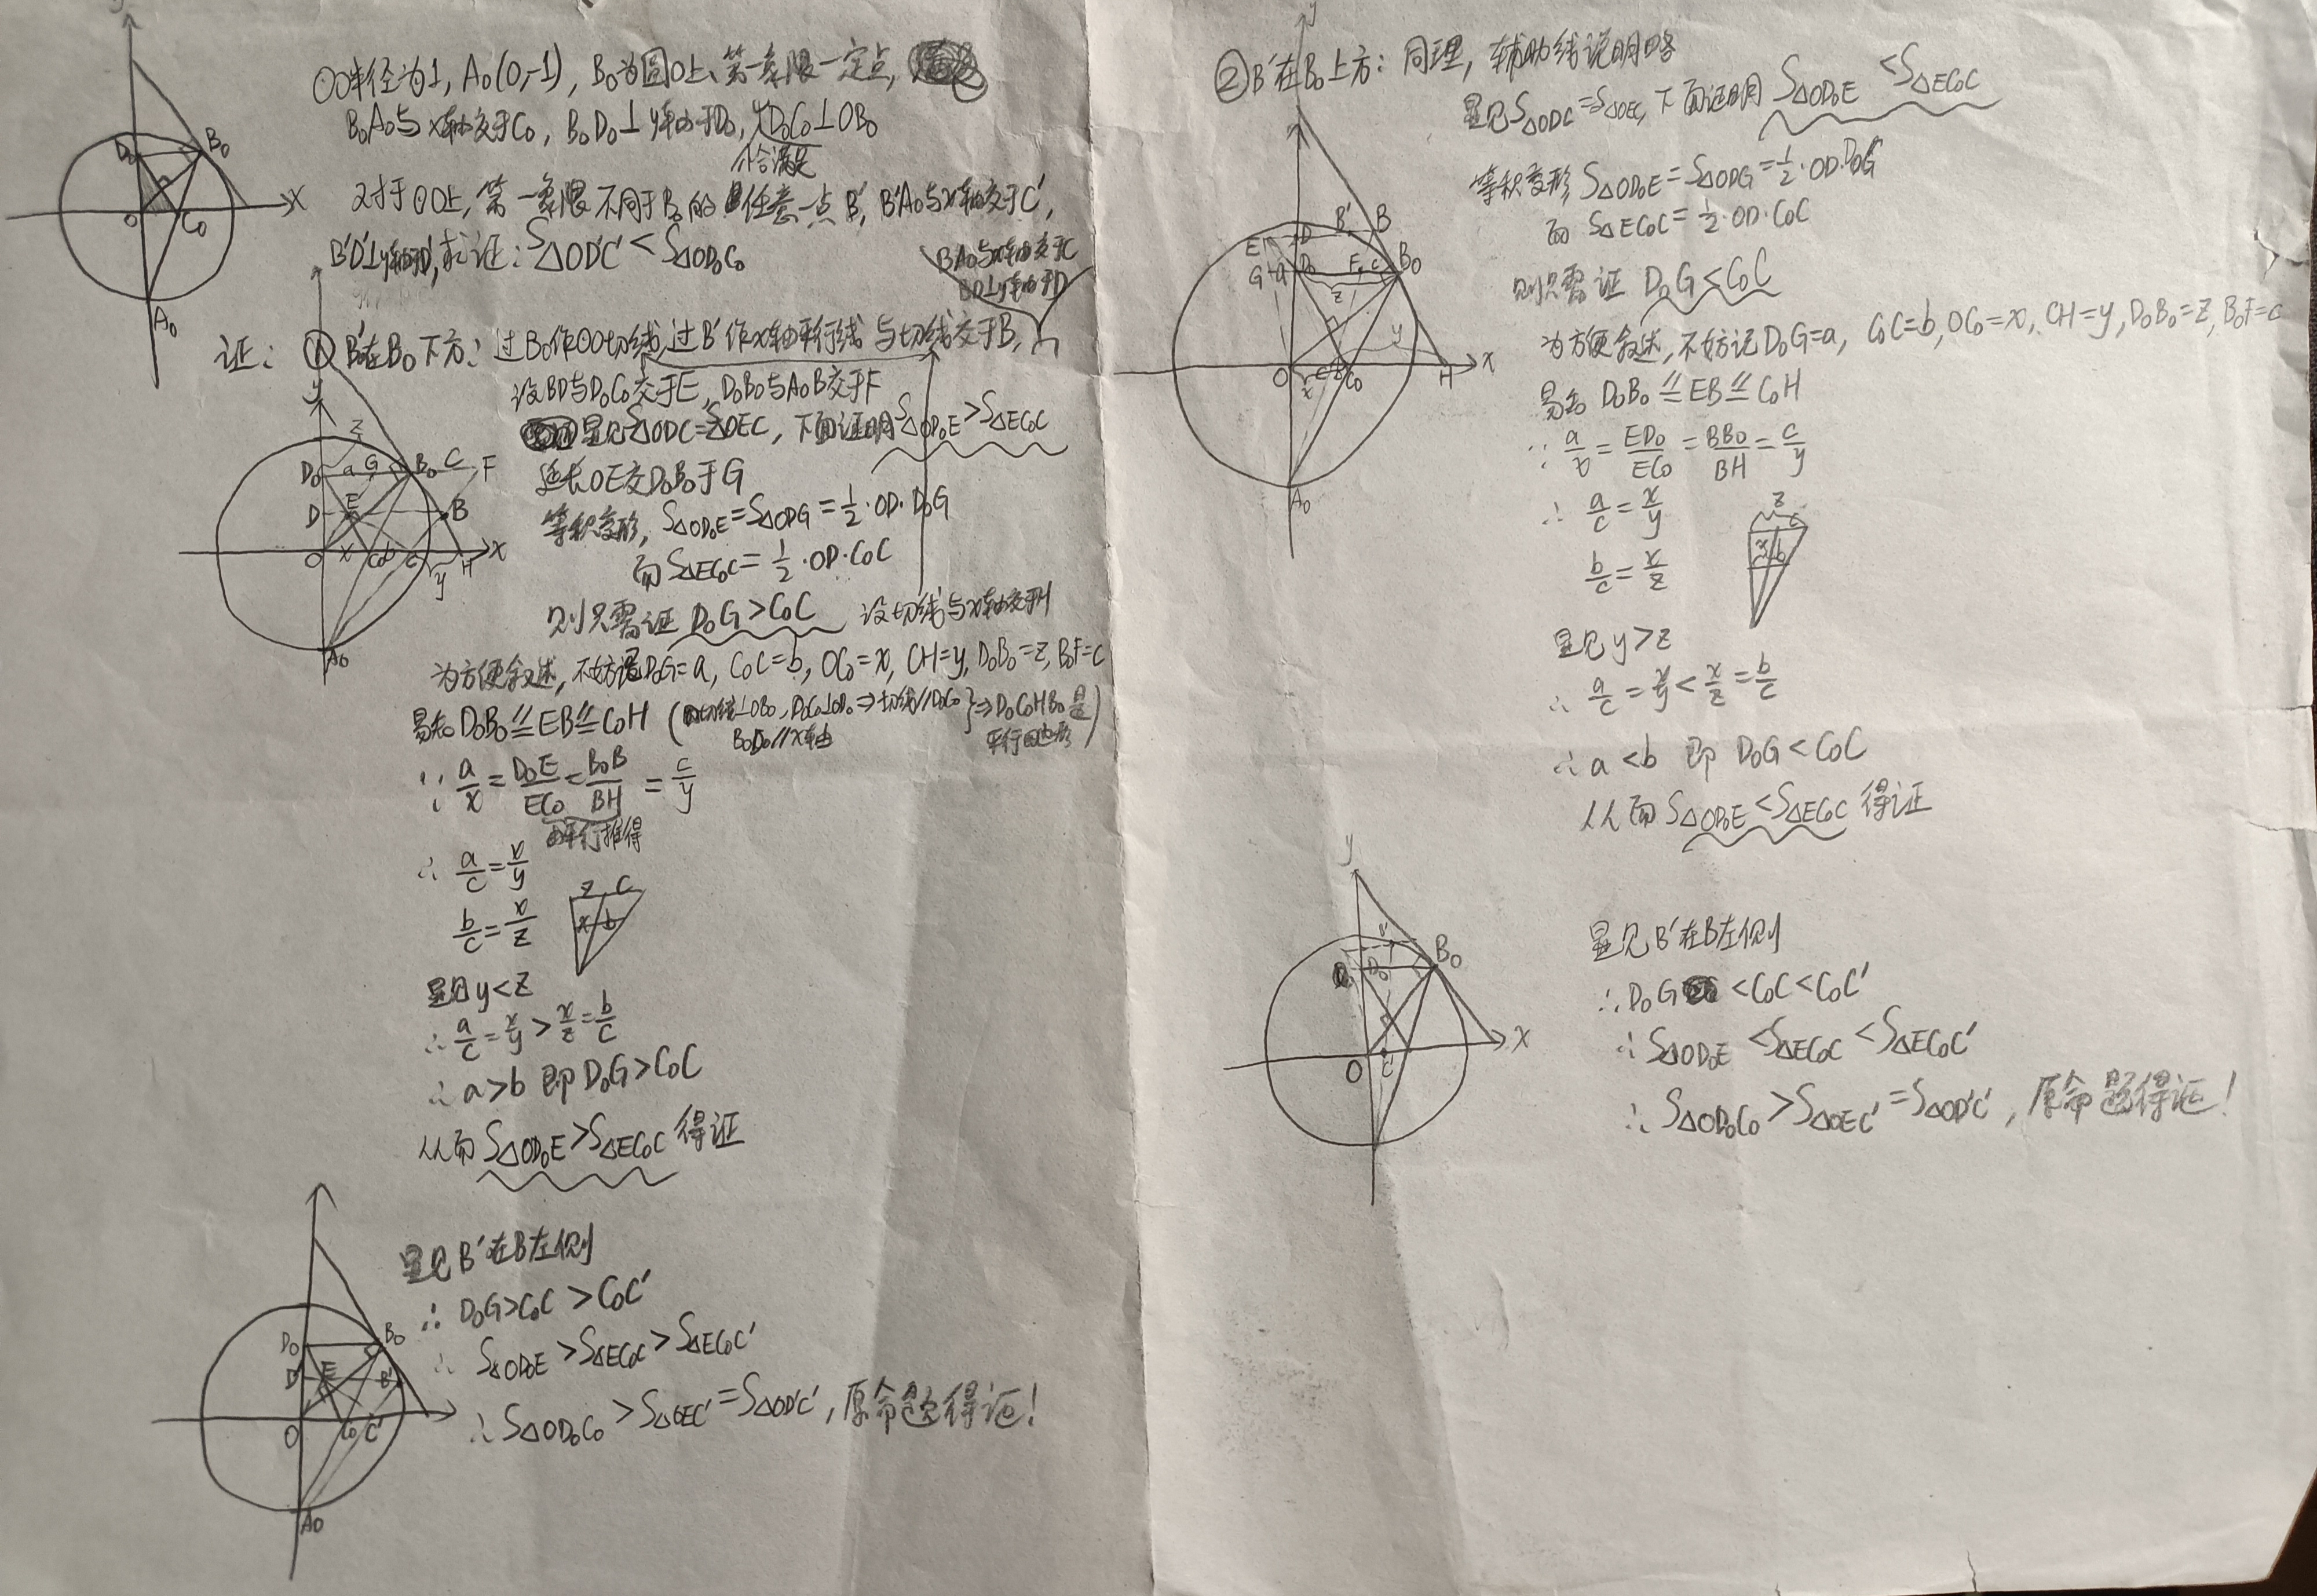 ⊙O半径为1, A₀(0,-1), B₀为圆O上、第一象限一定点,
B₀A₀与x轴交于C₀, B₀D₀⊥y轴于D₀, D₀C₀⊥OB₀
恰满足
对于⊙O上,第一象限不同于B₀的任意一点B', B'A₀与x轴交于C',
B'D'⊥y轴于D', 求证: S△OD'C' < S△OD₀C₀
BA₀与x轴交于C
BD⊥y轴于D
证: ① B'在B₀下方: 过B₀作⊙O切线, 过B'作x轴平行线与切线交于B,
设BD与D₀C₀交于E, D₀B₀与A₀B交于F
显见S△ODC=S△OEC, 下面证明S△OD₀E>S△EC₀C
延长OE交D₀B₀于G
等积变形, S△OD₀E=S△ODG=½·OD·D₀G
而S△EC₀C=½·OD·C₀C
则只需证 D₀G>C₀C 设切线与x轴交于H
为方便叙述, 不妨记D₀G=a, C₀C=b, OC₀=x, CH=y, D₀B₀=z, B₀F=c
易知D₀B₀∥=EB∥=C₀H (切线⊥OB₀, D₀C₀⊥OD₀⇒切线∥D₀C₀ }⇒D₀C₀HB₀是
B₀D₀∥x轴 平行四边形)
∵ a/x = D₀E/EC₀ = B₀B/BH = c/y
由平行推得
∴ a/c = x/y
b/c = x/z
z c
x b
显见y<z
∴ a/c = x/y > x/z = b/c
∴ a>b 即 D₀G>C₀C
从而 S△OD₀E>S△EC₀C 得证
显见B'在B左侧
∴ D₀G>C₀C>C₀C'
∴ S△OD₀E>S△EC₀C>S△EC₀C'
∴ S△OD₀C₀>S△OEC'=S△OD'C', 原命题得证!
②B'在B₀上方: 同理, 辅助线说明略
显见S△ODC=S△OEC, 下面证明 S△OD₀E<S△EC₀C
等积变形 S△OD₀E=S△ODG=½·OD·D₀G
而 S△EC₀C=½·OD·C₀C
则只需证 D₀G<C₀C
为方便叙述, 不妨记D₀G=a, C₀C=b, OC₀=x, CH=y, D₀B₀=z, B₀F=c
易知 D₀B₀∥=EB∥=C₀H
∵ a/x = ED₀/EC₀ = BB₀/BH = c/y
∴ a/c = x/y
b/c = x/z
z
c
x b
显见 y>z
∴ a/c = x/y < x/z = b/c
∴ a<b 即 D₀G<C₀C
从而 S△OD₀E<S△EC₀C 得证
显见B'在B左侧
∴ D₀G<C₀C<C₀C'
∴ S△OD₀E<S△EC₀C<S△EC₀C'
∴ S△OD₀C₀>S△OEC'=S△OD'C', 原命题得证!